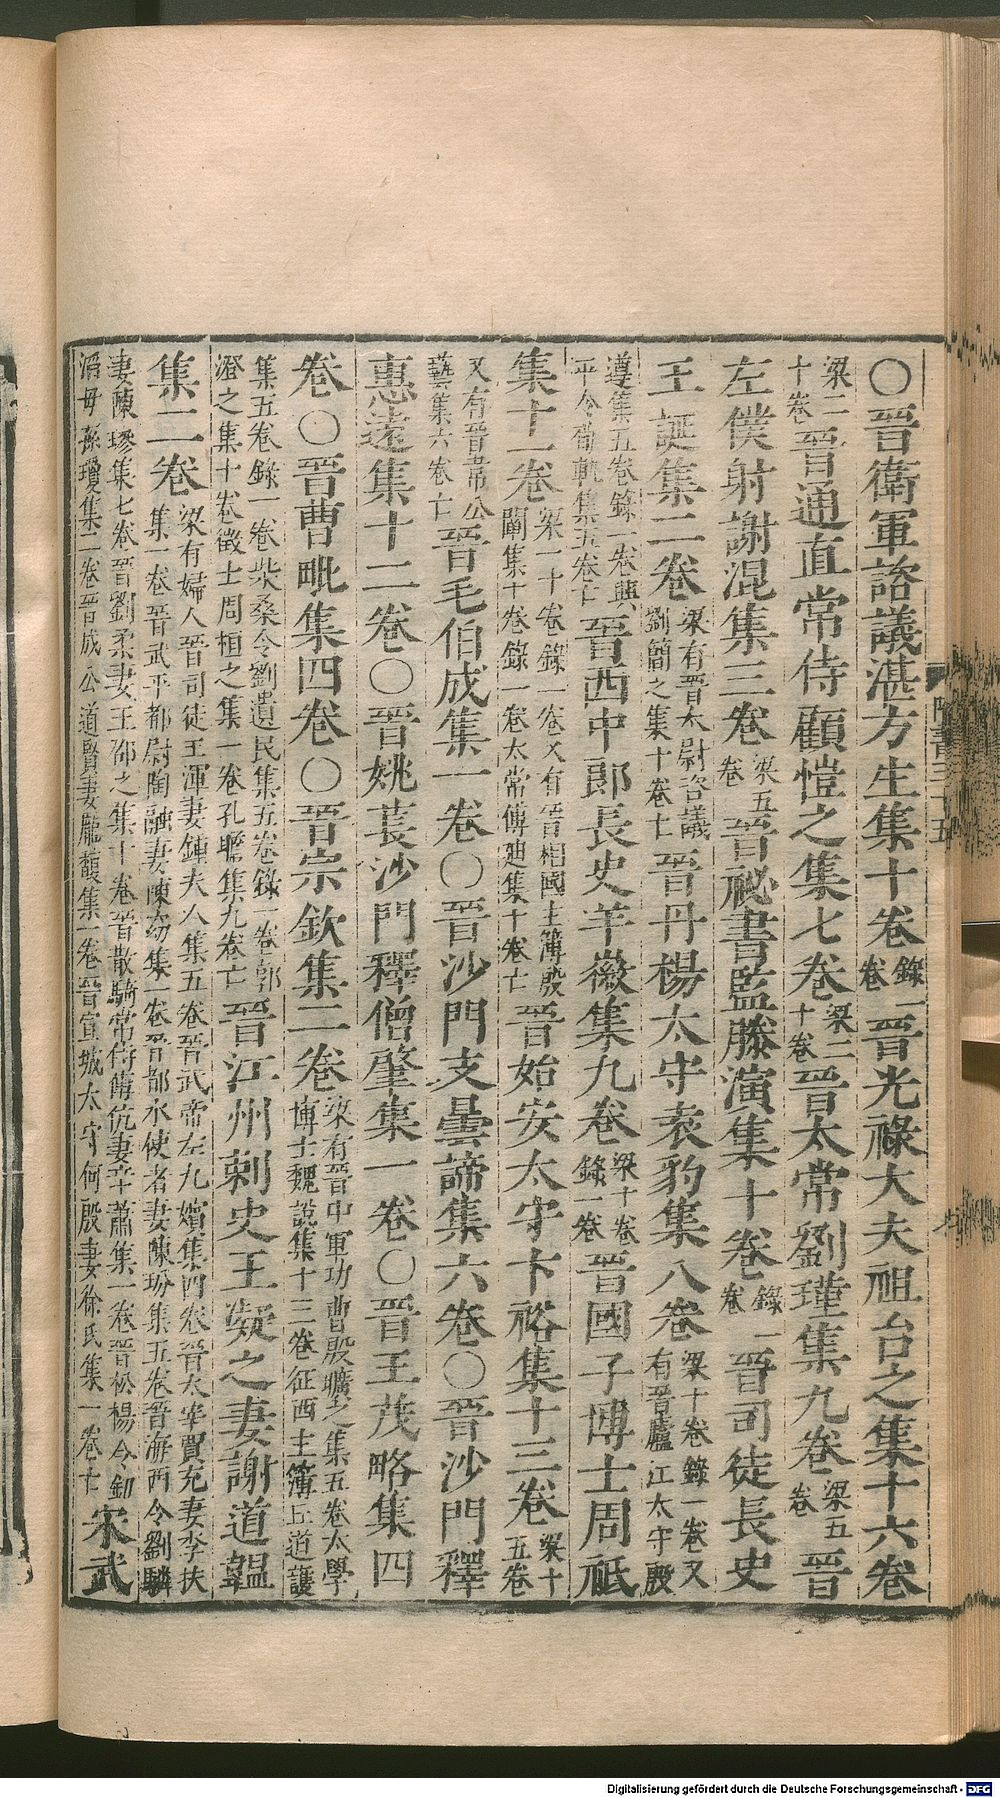 〇晉衛軍諮議湛方生集十卷錄一卷晉光祿大夫祖台之集十六卷
梁二十卷晉通直常侍顧愷之集七卷梁二十卷晉太常劉瑾集九卷梁五卷晉
左僕射謝混集三卷梁五卷晉祕書監滕演集十卷錄一卷晉司徒長史
王誕集二卷梁有晉太尉咨議劉簡之集十卷亡晉丹楊太守袁豹集八卷梁十卷錄一卷又有晉廬江太守殷
遵集五卷錄一卷興平令荀軌集五卷亡晉西中郎長史羊徽集九卷梁十卷錄一卷晉國子博士周祗
集十一卷梁二十卷錄一卷又有晉相國主簿殷闡集十卷錄一卷太常傅迪集十卷亡晉始安太守卞裕集十三卷梁十五卷
又有晉韋公藝集六卷亡晉毛伯成集一卷〇晉沙門支曇諦集六卷〇晉沙門釋
惠遠集十二卷〇晉姚萇沙門釋僧肇集一卷〇晉王茂略集四
卷〇晉曹毗集四卷〇晉宗欽集二卷梁有晉中軍功曹殷曠之集五卷太學博士魏說集十三卷征西主簿丘道護
集五卷錄一卷柴桑令劉遺民集五卷錄一卷郭澄之集十卷徵士周桓之集一卷孔瞻集九卷亡晉江州刺史王凝之妻謝道韞
集二卷梁有婦人晉司徒王渾妻鍾夫人集五卷晉武帝左九嬪集四卷晉太宰賈充妻李扶集一卷晉武平都尉陶融妻陳窈集一卷晉都水使者妻陳玢集五卷晉海西令劉驎
妻陳㻗集七卷晉劉柔妻王邵之集十卷晉散騎常侍傅伉妻辛蕭集一卷晉松楊令鈕滔母孫瓊集二卷晉成公道賢妻龐馥集一卷晉宣城太守何殷妻徐氏集一卷亡宋武
隋書三十五
Digitalisierung gefördert durch die Deutsche Forschungsgemeinschaft - DFG